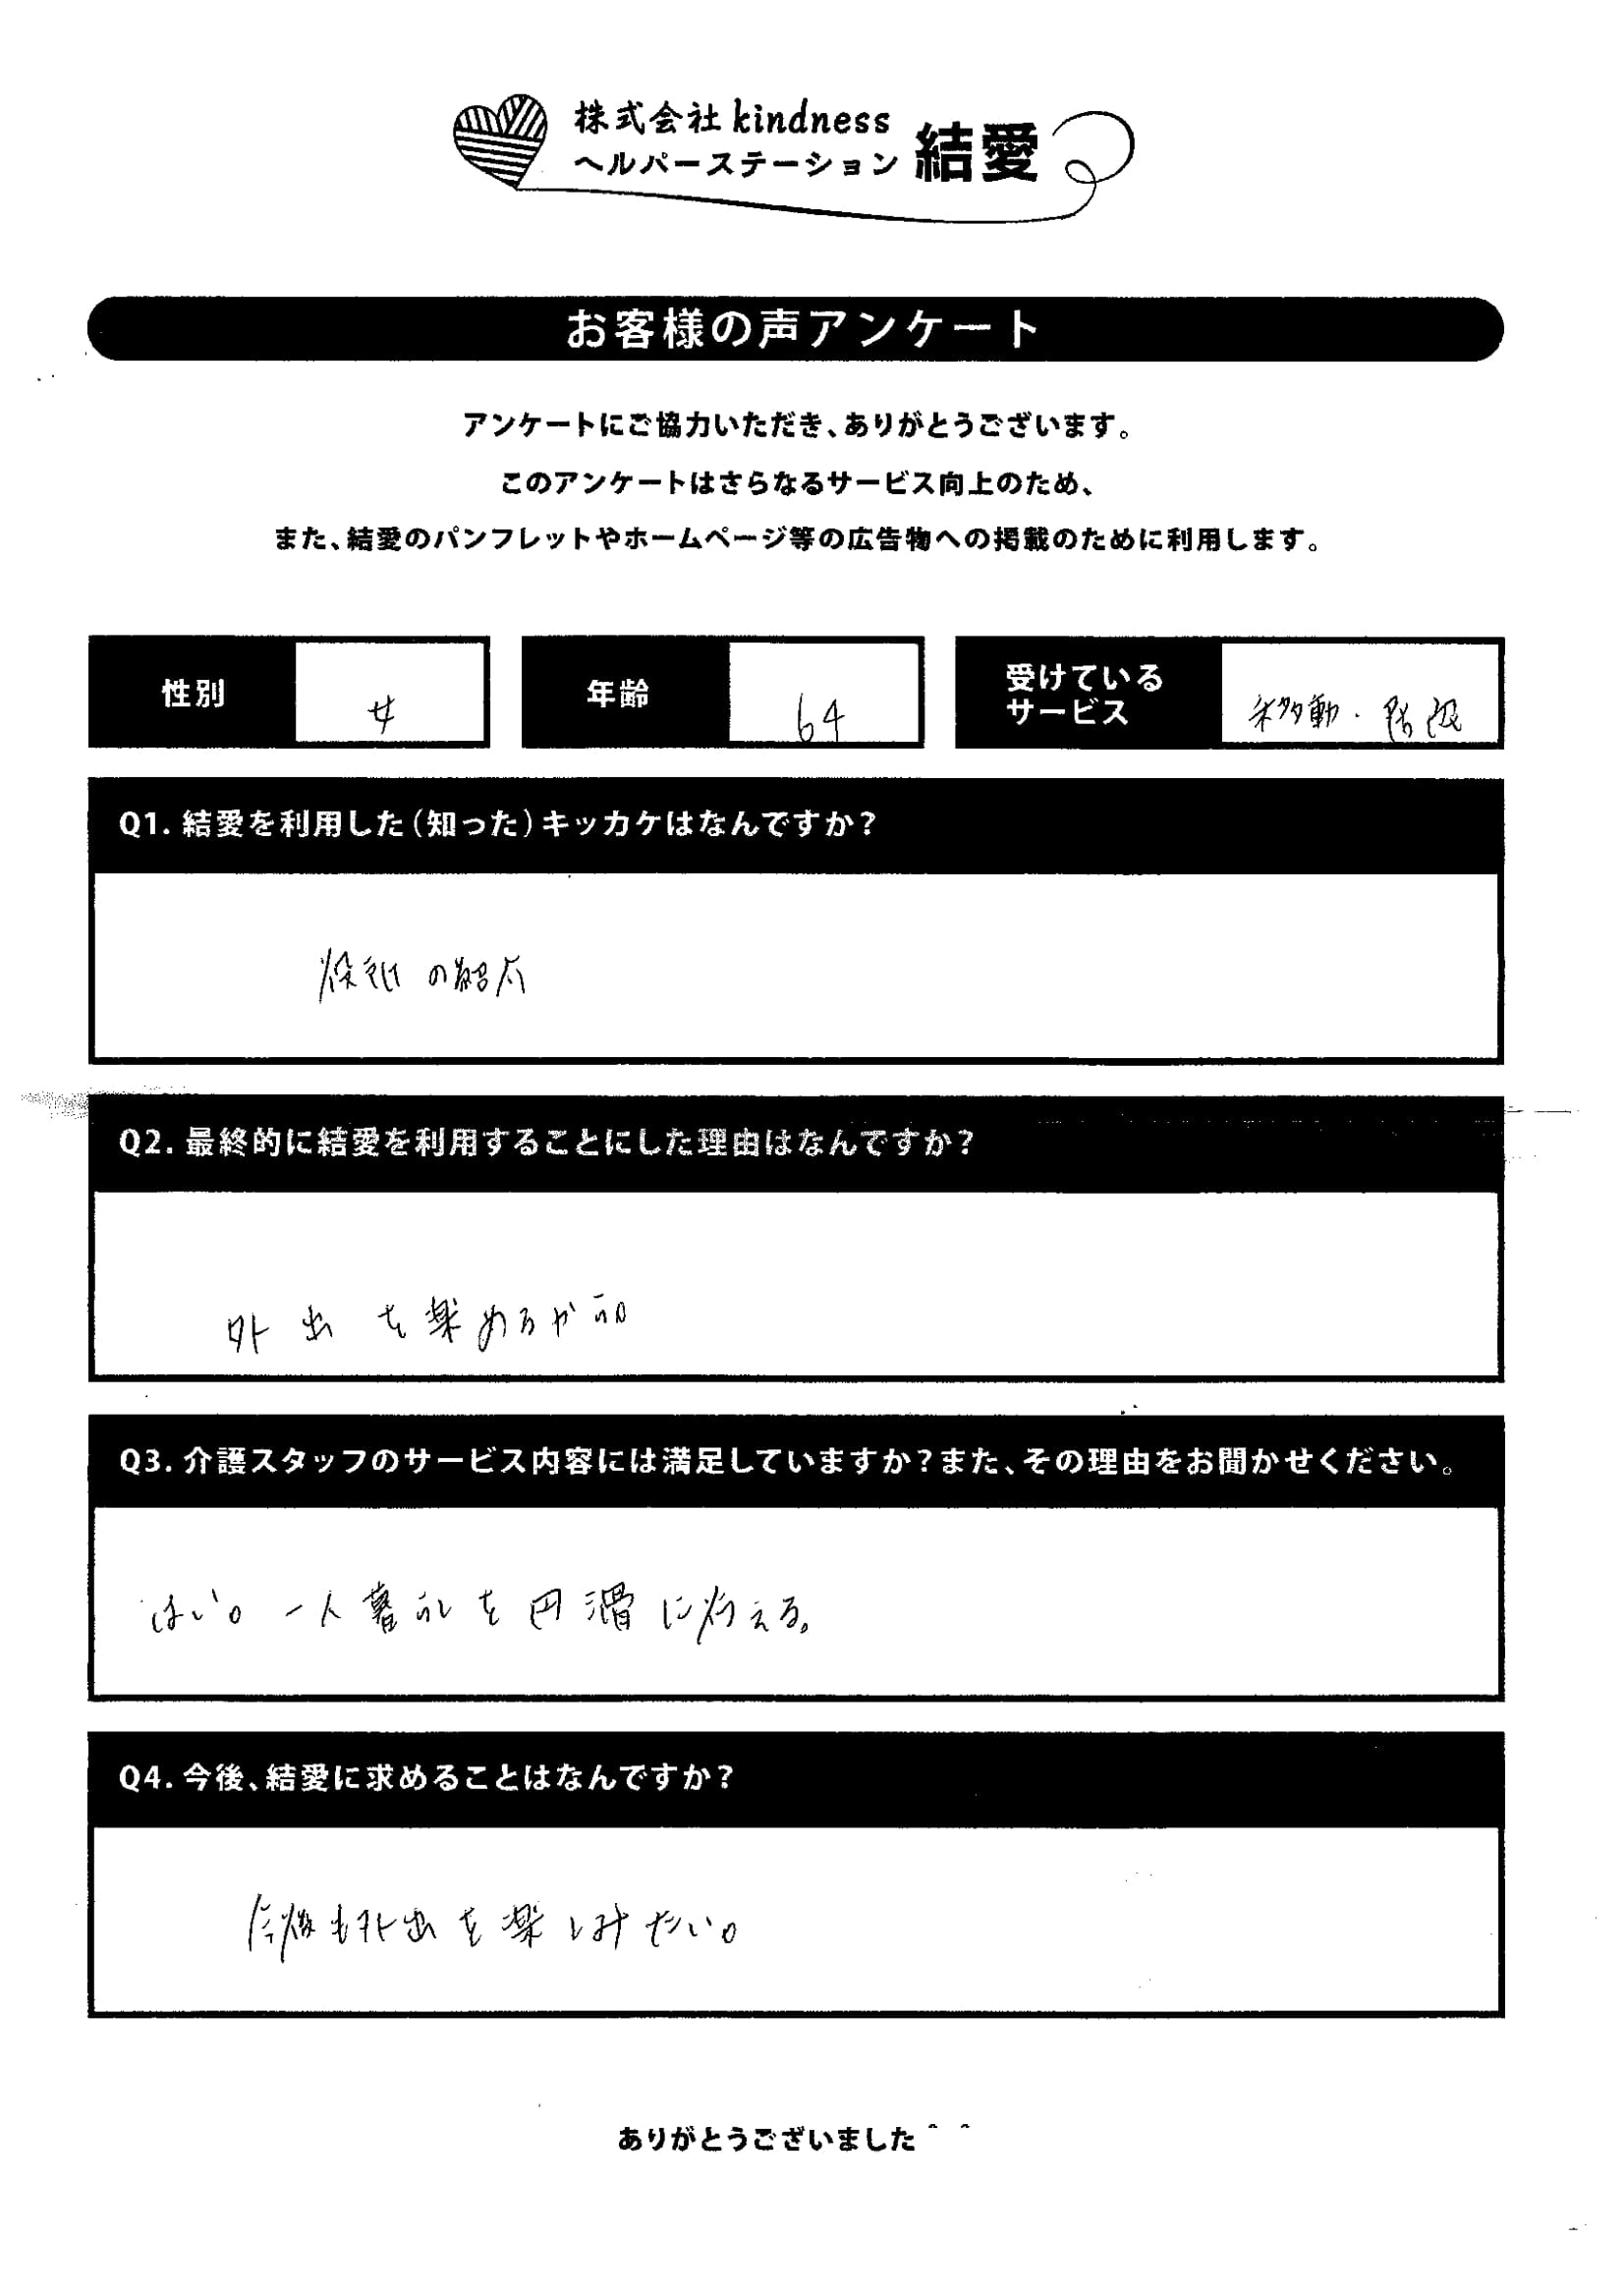 株式会社 kindness
ヘルパーステーション 結愛
お客様の声アンケート
アンケートにご協力いただき、ありがとうございます。
このアンケートはさらなるサービス向上のため、
また、結愛のパンフレットやホームページ等の広告物への掲載のために利用します。
性別 女 年齢 64 受けているサービス 移動・
Q1. 結愛を利用した（知った）キッカケはなんですか？
の紹介
Q2. 最終的に結愛を利用することにした理由はなんですか？
外出を楽めるから。
Q3. 介護スタッフのサービス内容には満足していますか？また、その理由をお聞かせください。
はい。一人暮らしを円滑に行える。
Q4. 今後、結愛に求めることはなんですか？
今後も外出を楽しみたい。
ありがとうございました＾＾